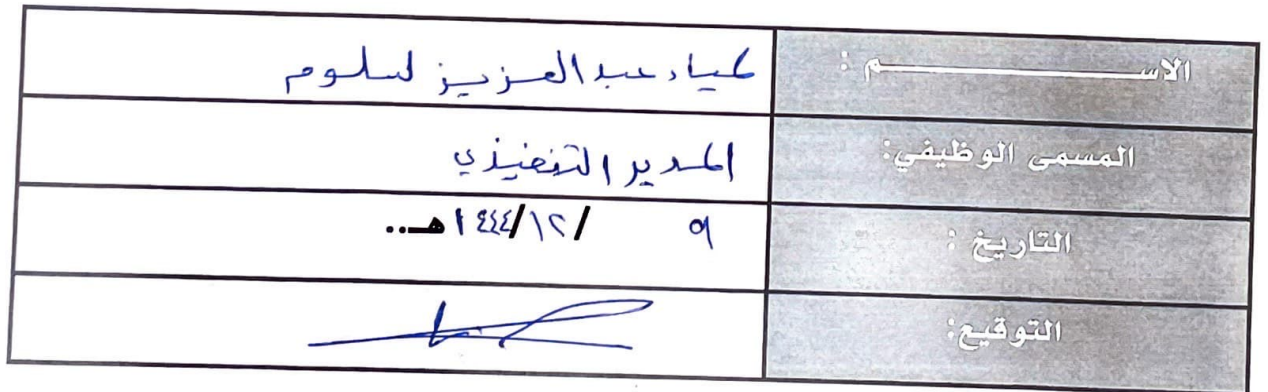 الاســـــــــــــم : لمياء عبدالعزيز السلوم
المسمى الوظيفي: المدير التنفيذي
التاريخ : ٩ /١٢/١٤٤٤هـ..
التوقيع: